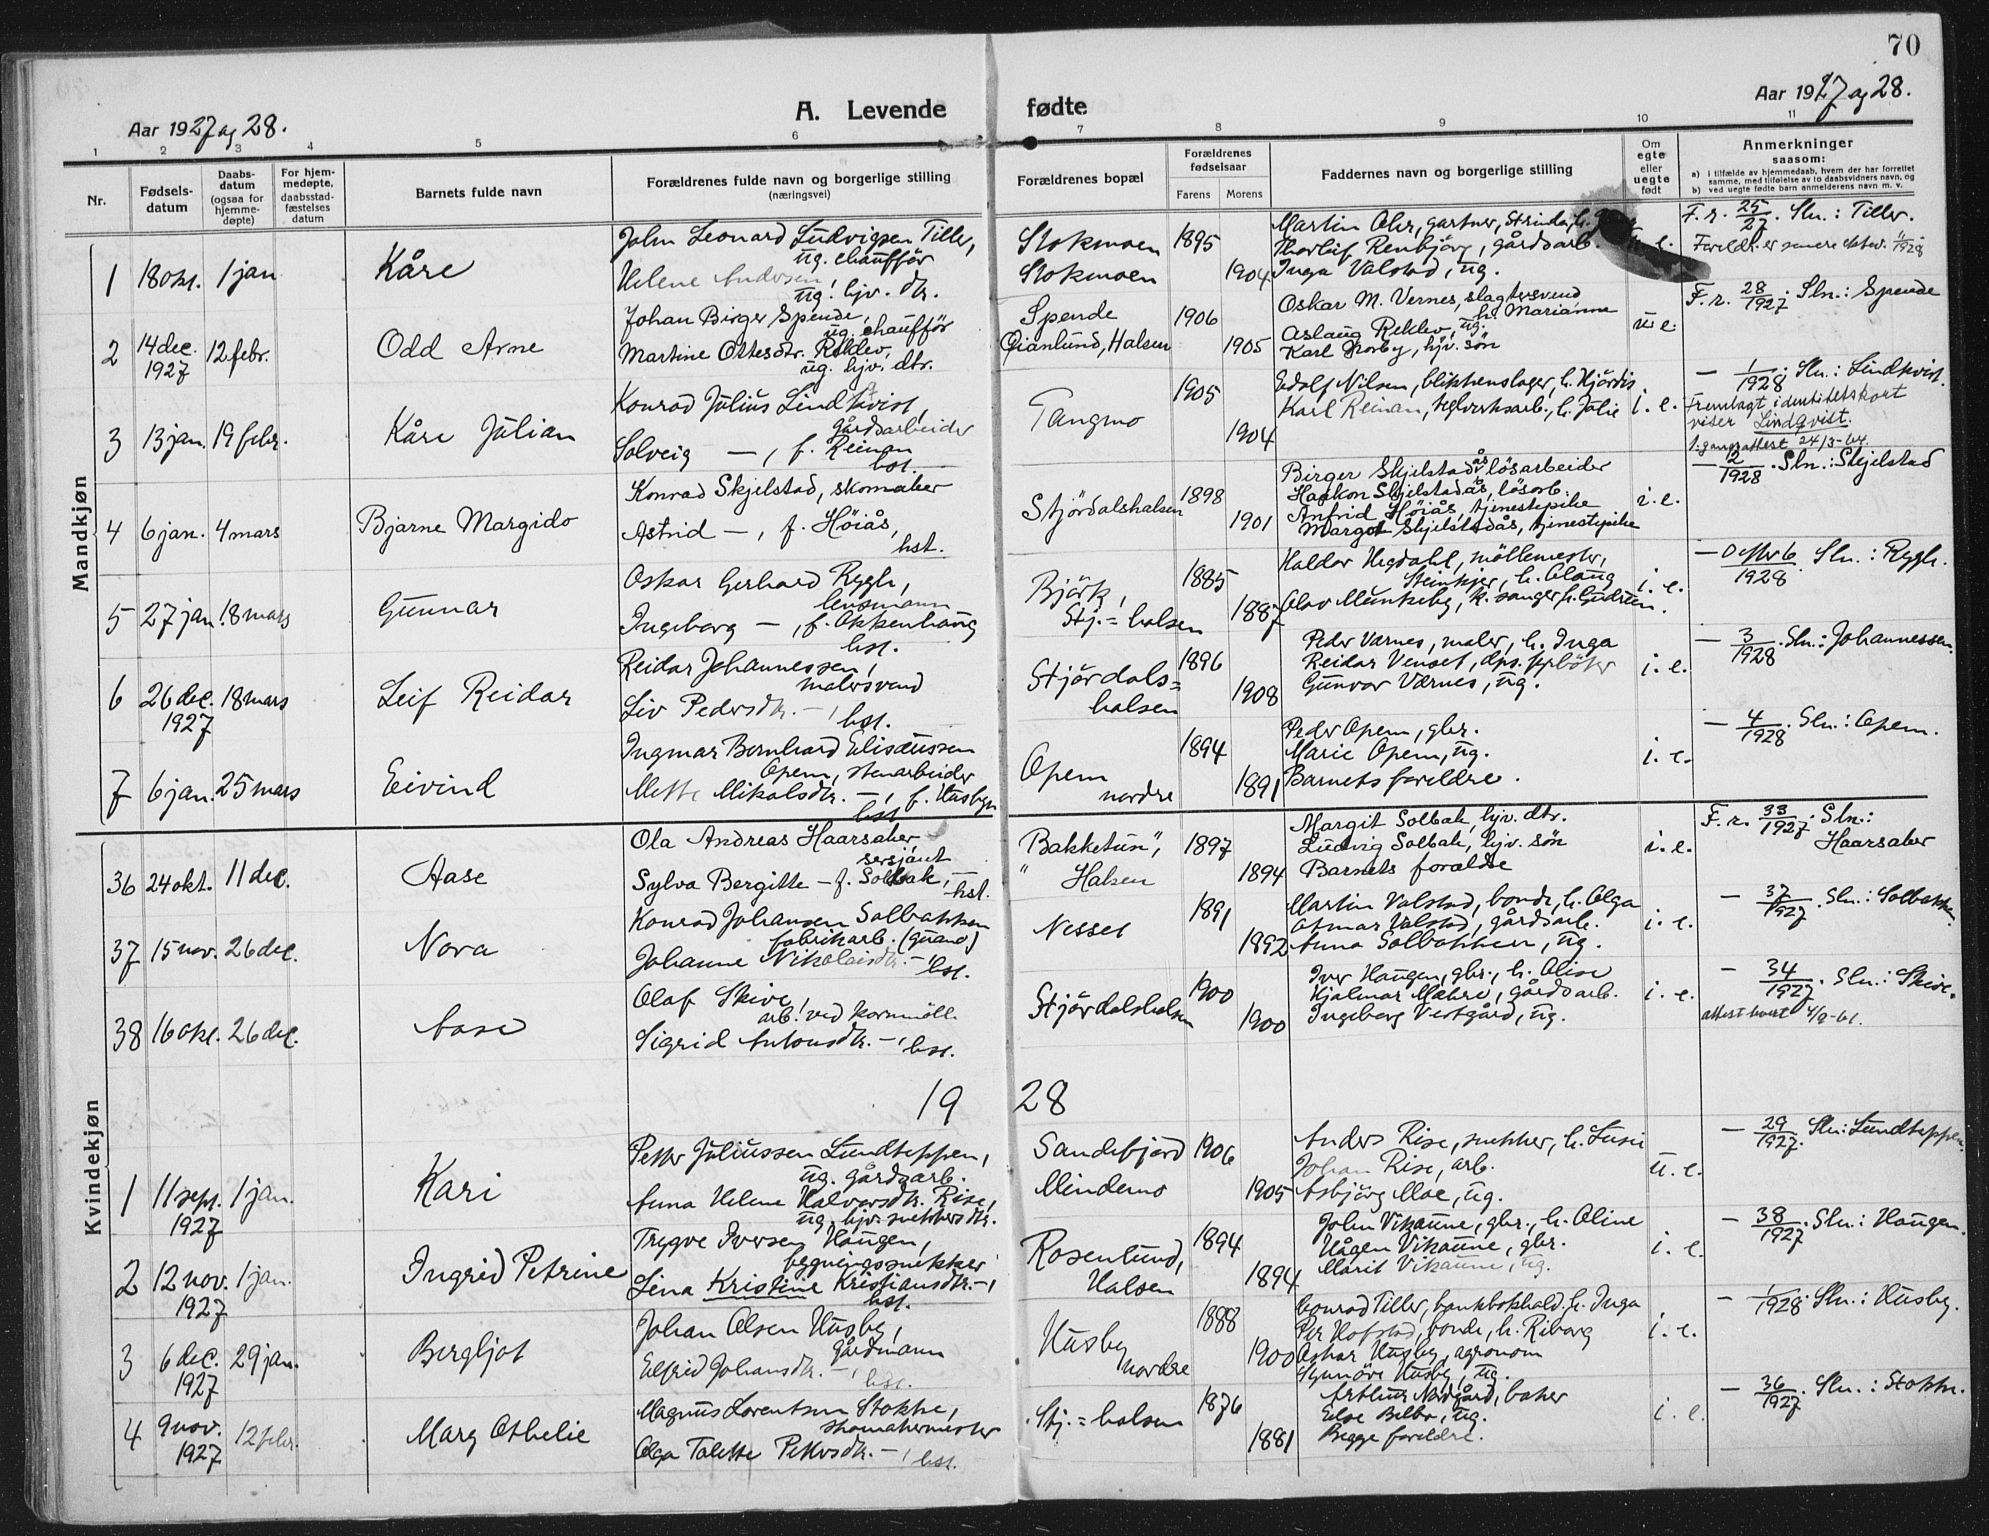 70
Aar 1927 og 28.
A. Levende fødte
Aar 1927 og 28.
1 2 3 4 5 6 7 8 9 10 11
Nr.
Fødsels-
datum
Daabs-
datum
(ogsaa for
hjemme-
døpte)
For hjem-
medøpte,
daabsstad-
fæstelses
datum
Barnets fulde navn
Forældrenes fulde navn og borgerlige stilling
(næringsvei)
Forældrenes bopæl
Forældrenes
fødselsaar
Farens Morens
Faddernes navn og borgerlige stilling
Om
egte
eller
uegte
født
Anmerkninger
saasom:
a) i tilfælde av hjemmedaab, hvem der har forrettet
samme, med tilføielse av to daabsvidners navn, og
b) ved uegte fødte barn anmelderens navn m. v.
Mandkjøn
1 18 okt. 1 jan. Kåre
John Leonard Ludvigsen Tiller,
ug. chauffør
Helene Andersen,
ug. hjv. dtr.
Stokmoen 1895
Stokmoen 1904
Martin Ohr, gartner, Strinda, h.
Thorleif Renbjörg, gårdsarb.
Inga Valstad, ug.
u. e.
F. r. 25/27. Sln.: Tiller.
Foreldr. er senere ektev. 1928
2 14 dec. 1927 12 febr. Odd Arne
Johan Birger Spende,
ug. chauffør
Martine Ottesdtr. Reklev,
ug. hjv. dtr.
Spende 1906
Grånlund, Halsen 1905
Oskar M. Vernes, slagtersvend,
h. Marianne
Aslaug Reklev, ug.
Karl Norby, hjv. søn
u. e.
F. r. 28/1927. Sln.: Spende
3 13 jan. 19 febr. Kåre Julian
Konrad Julius Lindkvist,
gårdsarbeider
Solveig —, f. Reinan
hst.
Tangmo 1905
1904
Edolf Nilsen, blikkenslager, h. Hjördis
Karl Reinan, teglverksarb., h. Julie
i. e.
— 1/1928. Sln.: Lindkvist.
Fremlagt identitetskort
viser Lindqvist.
1. gangsattest 24/3-64.
4 6 jan. 4 mars Bjarne Margido
Konrad Skjelstad, skomaker
Astrid —, f. Höiås,
hst.
Stjördalshalsen 1898
1901
Birger Skjelstadås, løsarbeider
Haakon Skjelstadås, løsarb.
Anfrid Höiås, tjenestepike
Margot Skjelstadås, tjenestepike
i. e.
— 2/1928. Sln.: Skjelstad
5 27 jan. 18 mars Gunnar
Oskar Gerhard Rygh,
lensmann
Ingeborg —, f. Okkenhaug
hst.
Björk, 1885
Stj.=halsen 1887
Haldor Hegdahl, möllemester,
Steinkjer, h. Olaug
Olav Munkeby, k. sanger, h. Gudrun.
i. e.
— 6/1928. Sln.: Rygh.
6 26 dec. 1927 18 mars Leif Reidar
Reidar Johannessen,
malersvend
Liv Pedersdtr. —,
hst.
Stjördals=
halsen 1896
1908
Peder Værnes, maler, h. Inga
Reidar Venset, dps. fyrböter
Gunvor Værnes, ug.
i. e.
— 3/1928. Sln.: Johannessen.
7 6 jan. 25 mars Eivind
Ingmar Bernhard Elisæussen
Opem, stenarbeider
Mette Mikalsdtr. —, f. Husbyn
hst.
Opem
nordre 1894
1891
Peder Opem, gbr.
Marie Opem, ug.
Barnets foreldre.
i. e.
— 4/1928. Sln.: Opem.
Kvindekjøn
36 24 okt. 11 dec. Aase
Ola Andreas Haarsaker,
sersjant
Sylva Bergitte — f. Solbak, —
hst.
"Bakketun", 1897
" Halsen 1894
Margit Solbak, hjv. dtr.
Ludvig Solbak, hjv. søn
Barnets forældre
i. e.
F. r. 33/1927. Sln.:
Haarsaker
37 15 nov. 26 dec. Nora
Konrad Johansen Solbakken
fabrikarb. (guano)
Johanne Nikolaisdtr. —,
hst.
Nesset 1891
1892
Martin Valstad, bonde, h. Olga
Otmar Valstad, gårdsarb.
Anna Solbakken, ug.
i. e.
— 32/1927. Sln.: Solbakken.
38 16 okt. 26 dec. Aase
Olaf Skive,
arb. ved kornmölle
Sigrid Antonsdtr. —,
hst.
Stjördalshalsen 1900
1900
Iver Haugen, gbr., h. Olise
Hjalmar Mæhre, gårdsarb.
Ingeborg Vestgård, ug.
i. e.
— 34/1927. Sln.: Skive.
attest utstedt 4/9-61.
1928
1 11 sept. 1927 1 jan. Kari
Petter Juliussen Lundteppen,
ug. gårdsarb.
Anna Helene Halvorsdtr. Rise,
ug. hjv. snekkersdtr.
Sandefjord 1906
Mindemo 1905
Anders Rise, snekker, h. Lusie
Johan Rise, arb.
Asbjörg Moe, ug.
u. e.
— 29/1927. Sln.: Lundteppen.
2 12 nov. 1927 1 jan. Ingrid Petrine
Trygve Iversen Haugen,
bygningssnekker
Lina Kristine Kristiansdtr. —,
hst.
Rosenlund,
Halsen 1894
1894
John Vikaune, gbr., h. Oline
Hågen Vikaune, gbr.
Marit Vikaune, ug.
i. e.
— 38/1927. Sln.: Haugen.
3 6 dec. 1927 29 jan. Bergljot
Johan Olsen Husby,
gårdmann
Elfrid Johansdtr. —,
hst.
Husby
nordre 1888
1900
Conrad Tiller, bankbokhold. h. Inga
Per Hofstad, bonde, h. Riborg
Oskar Husby, agronom
Synnöve Husby, ug.
i. e.
— 1/1928. Sln.: Husby.
4 9 nov. 1927 12 febr. Mary Othelie
Magnus Lorentsen Stokke,
skomakermester
Olga Talette Pettersdtr. —,
hst.
Stj.=halsen 1876
1881
Arthur Nordgård, baker
Else Belbo, ug.
Begge foreldre.
i. e.
— 36/1927. Sln.: Stokke.